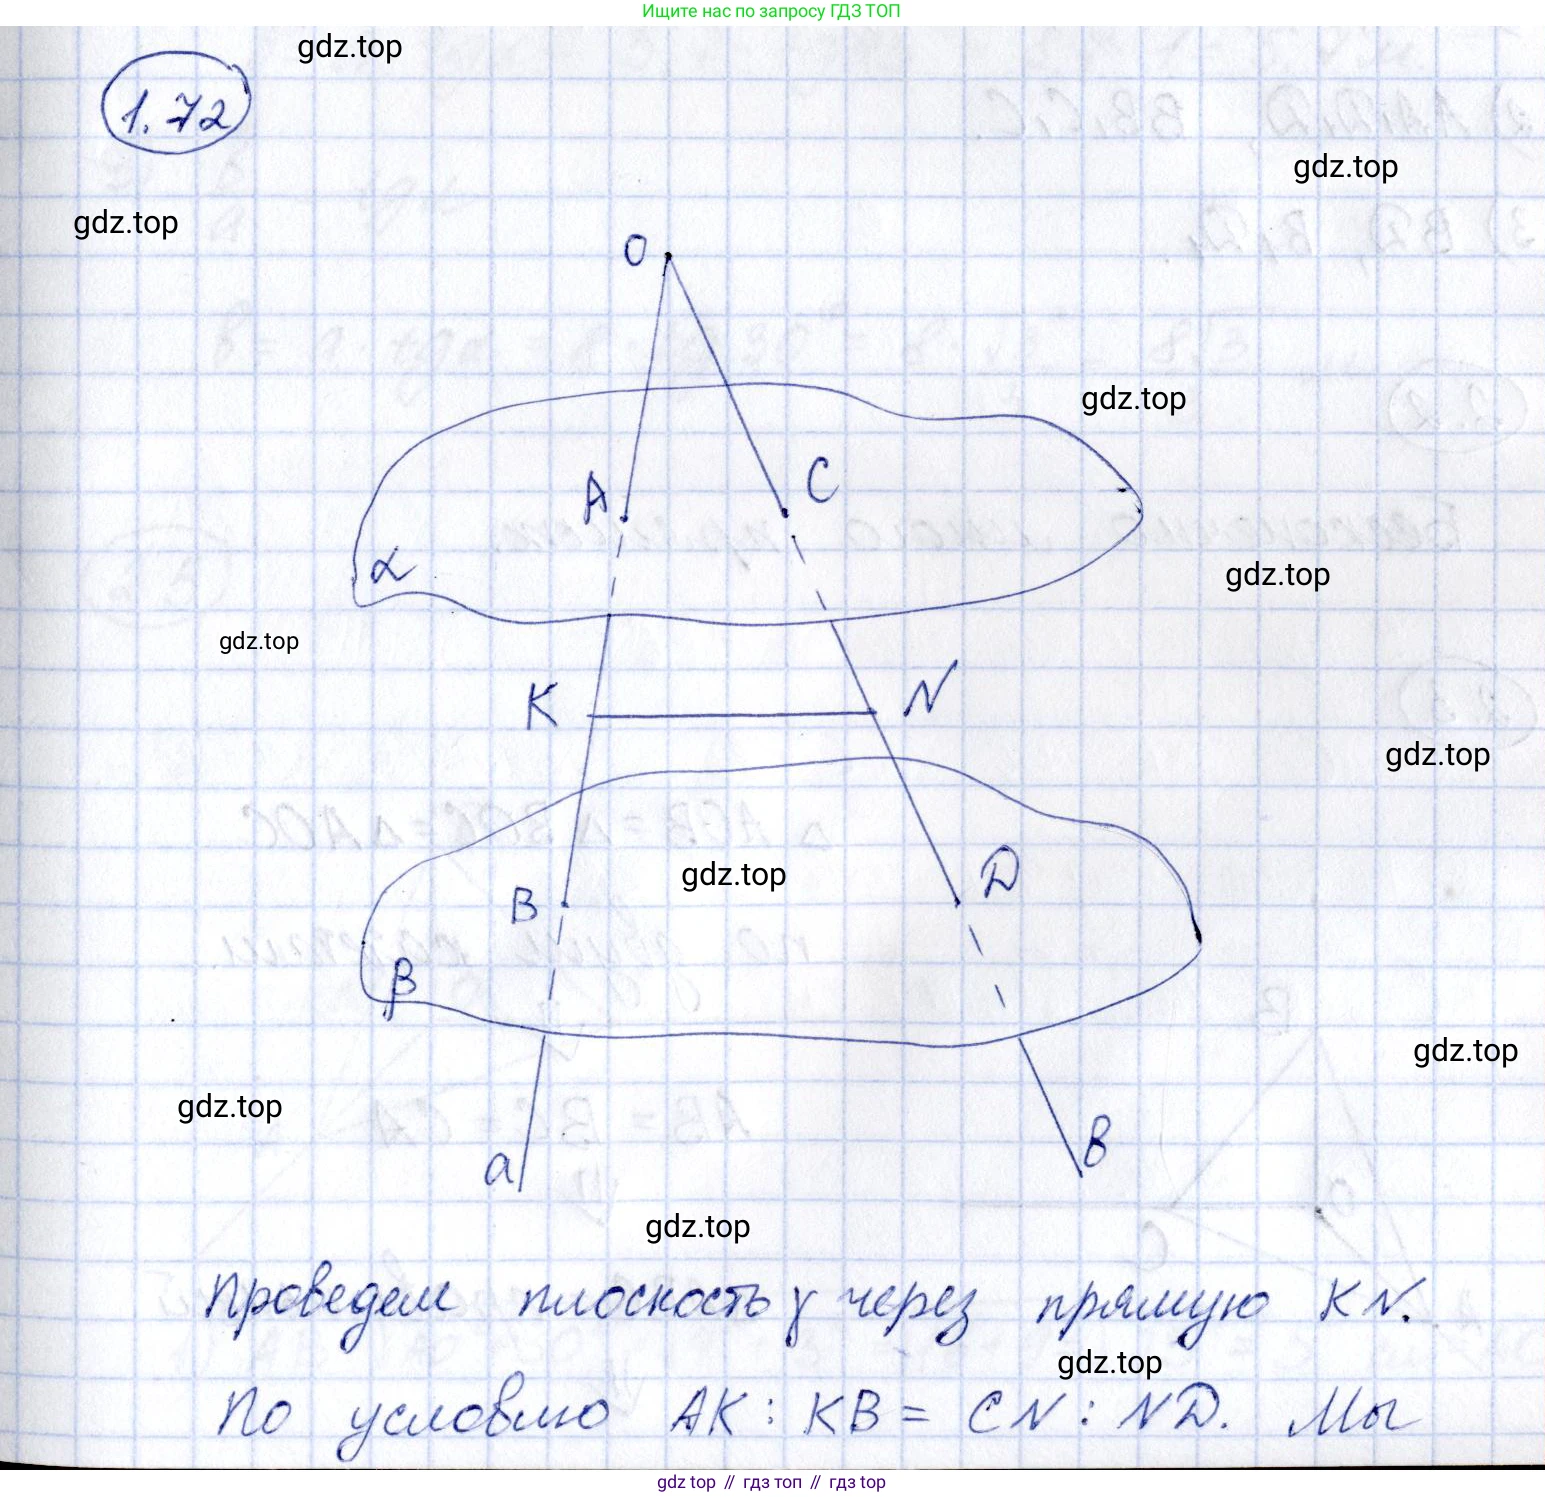 Ищите нас по запросу ГДЗ ТОП
gdz.top
1.72
gdz.top
gdz.top
O
gdz.top
A
C
α
gdz.top
gdz.top
K
N
gdz.top
gdz.top
B
D
β
gdz.top
gdz.top
a
B
gdz.top
Проведем плоскость γ через прямую KN.
gdz.top
По условию AK : KB = CN : ND. Мы
gdz top // гдз топ // гдз top